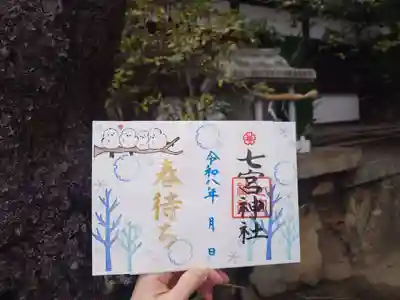 七宮神社
令和八年 月 日
春待ち